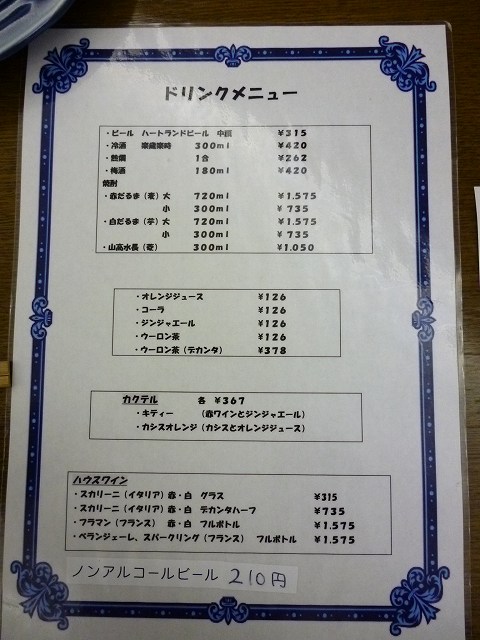 ドリンクメニュー
・ビール ハートランドビール 中瓶 ¥315
・冷酒 楽歳楽時 300ml ¥420
・熱燗 1合 ¥262
・梅酒 180ml ¥420
焼酎
・赤だるま(麦)大 720ml ¥1,575
小 300ml ¥735
・白だるま(芋)大 720ml ¥1,575
小 300ml ¥735
・山高水長(麦) 300ml ¥1,050
・オレンジジュース ¥126
・コーラ ¥126
・ジンジャエール ¥126
・ウーロン茶 ¥126
・ウーロン茶(デカンタ) ¥378
カクテル 各 ¥367
・キティー (赤ワインとジンジャエール)
・カシスオレンジ(カシスとオレンジジュース)
ハウスワイン
・スカリーニ(イタリア)赤・白 グラス ¥315
・スカリーニ(イタリア)赤・白 デカンタハーフ ¥735
・フラマン(フランス) 赤・白 フルボトル ¥1,575
・ベランジェーレ、スパークリング(フランス) フルボトル ¥1,575
ノンアルコールビール 210円